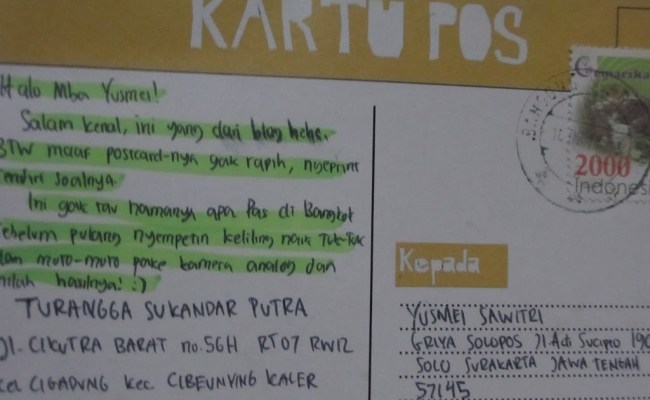 KARTU POS
Halo Mba Yusmei!
Salam kenal, ini yang dari blog hehe.
BTW maaf postcard-nya gak rapih, ngeprint
sendiri soalnya.
Ini gak tau namanya apa Pas di Bangkok
sebelum pulang nyempetin keliling naik Tuk-Tuk
dan moto-moto pake kamera analog dan
inilah hasilnya! :)
TURANGGA SUKANDAR PUTRA
Jl. CIKUTRA BARAT no.56H RT07 RW12
kel CIGADUNG kec. CIBEUNYING KALER
2000
Indonesi
Kepada
YUSMEI SAWITRI
GRIYA SOLOPOS Jl.Adi Sucipto 190
SOLO SURAKARTA JAWA TENGAH
57145